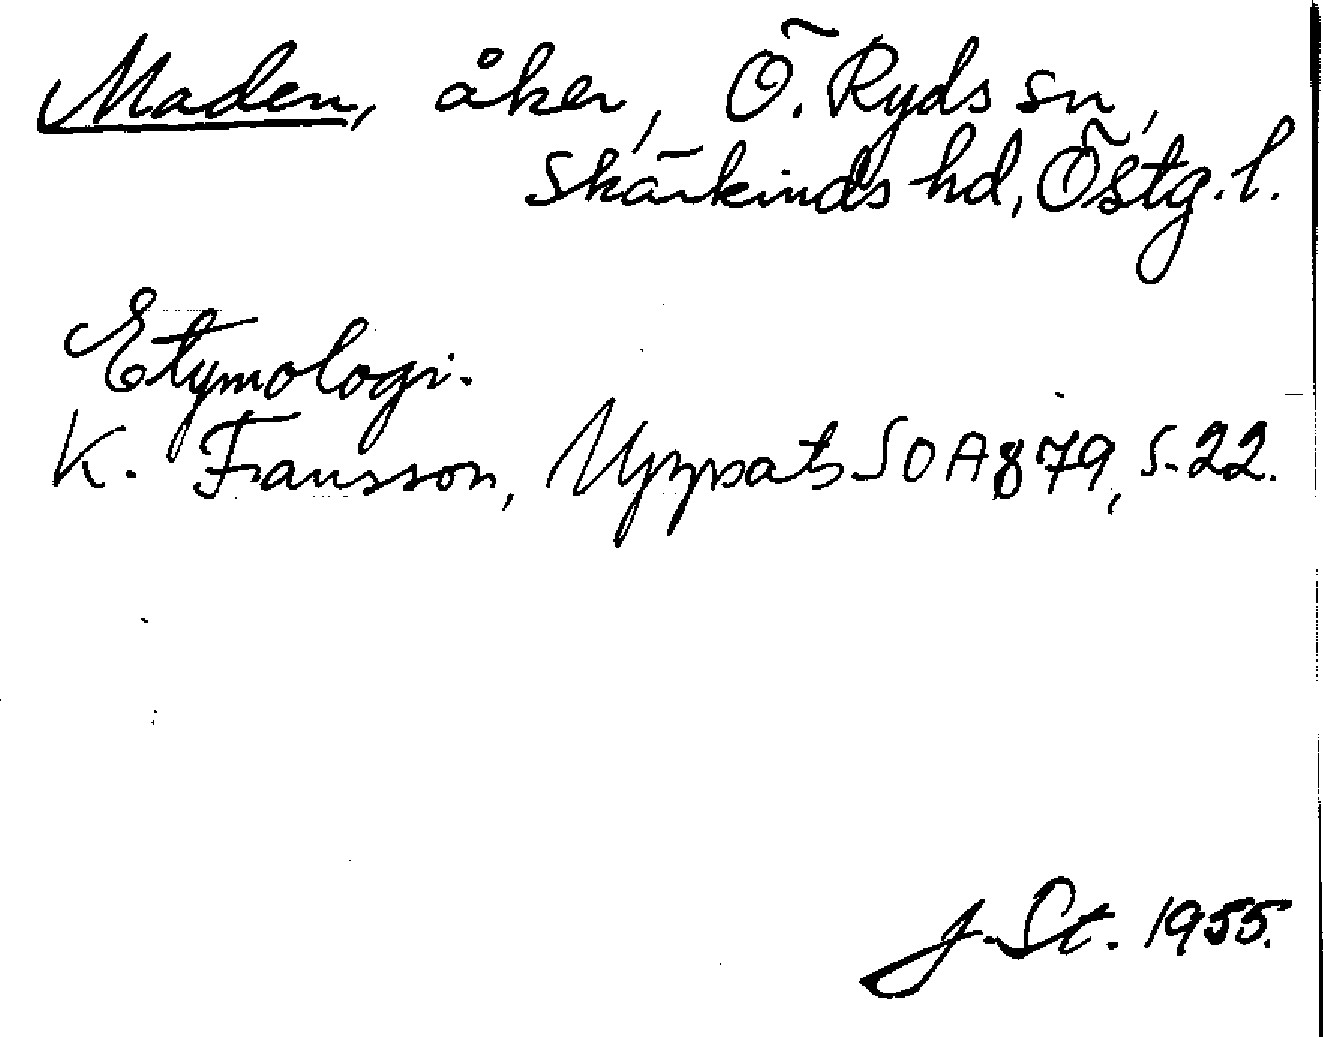 Maden, åker, Ö. Ryds sn,
Skärkinds hd, Östg. l.
Etymologi.
K. Fransson, Uppsats SOA 879, s. 22.
J. St. 1955.